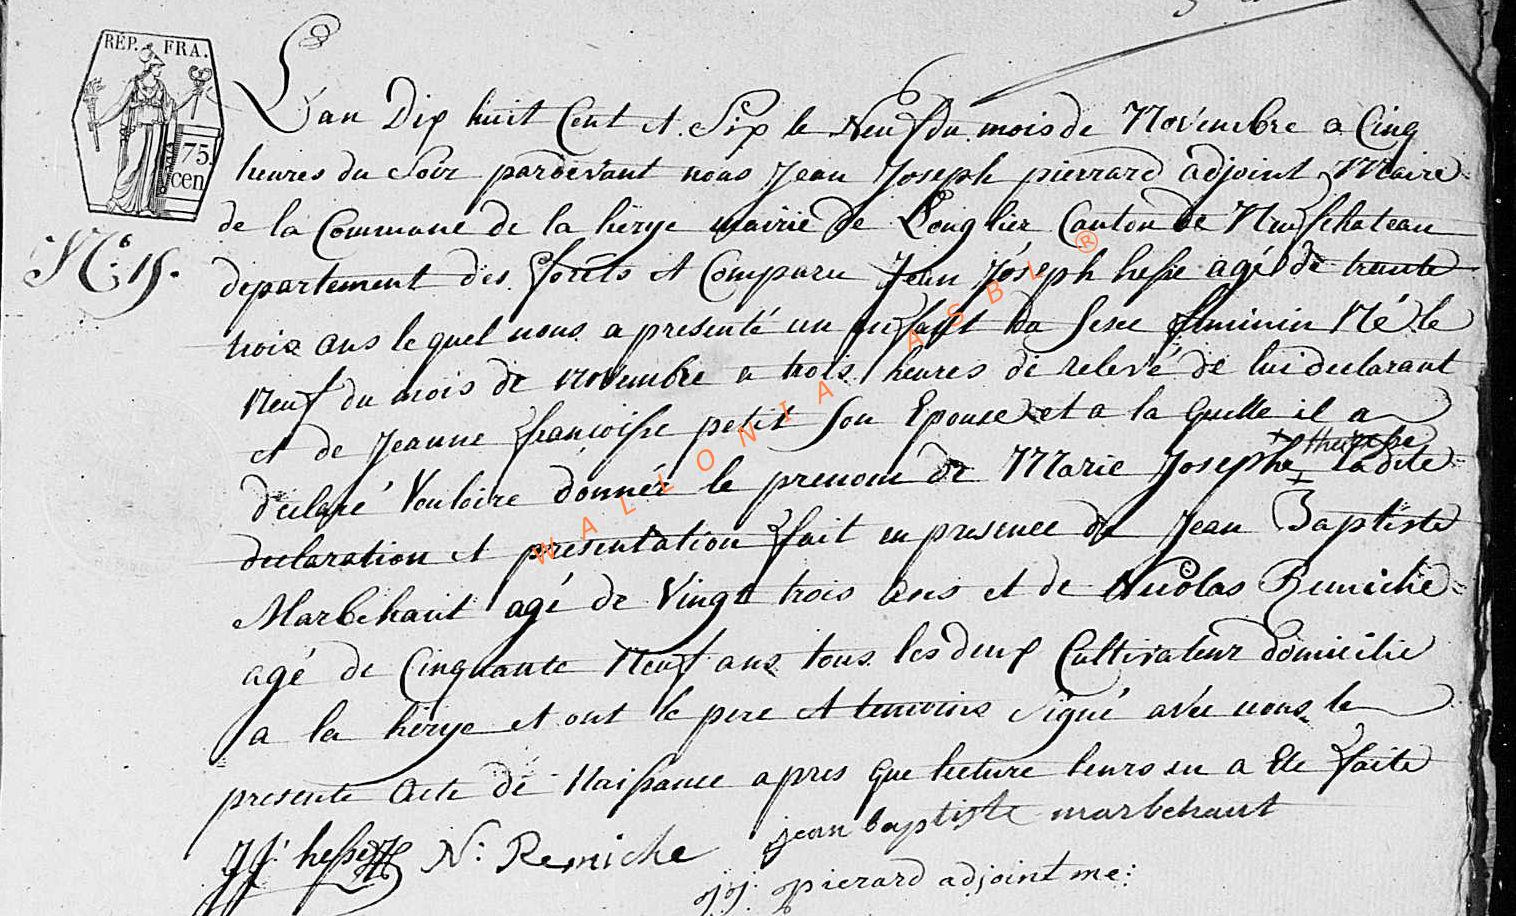 RÉP. FRA.
75.
cen
N.° 15.
L'an Dix huit Cent et Six le Neuf du mois de Novembre a Cinq
heures du Soir pardevant nous Jean Joseph pierrard adjoint Maire
de la Commune de la herye mairie de Longlier Canton de Neufchateau
departement des forêts et Comparu Jean Joseph hesse agé de trente
trois ans le quel nous a presenté un enfant du Sexe feminin Né le
Neuf du mois de novembre a trois heures de relevé de lui declarant
et de Jeanne francoisse petit Son Epouse et a la quelle il a
declaré Vouloire donnér le prenom de Marie Josephe therese ladite
declaration et presentation fait en presence de Jean Baptiste
Marbehant agé de Vingt trois ans et de Nicolas Remiche
agé de Cinquante Neuf ans tous les deux Cultivateur domicilie
a la herye et ont le pere et temoins Signé avec nous le
presente acte de Naissance apres que lecture leurs en a Ete faite
JJ. hesse N. Remiche jean baptiste marbehant
JJ. pierard adjoint me:
WALLONIA ASBL ®